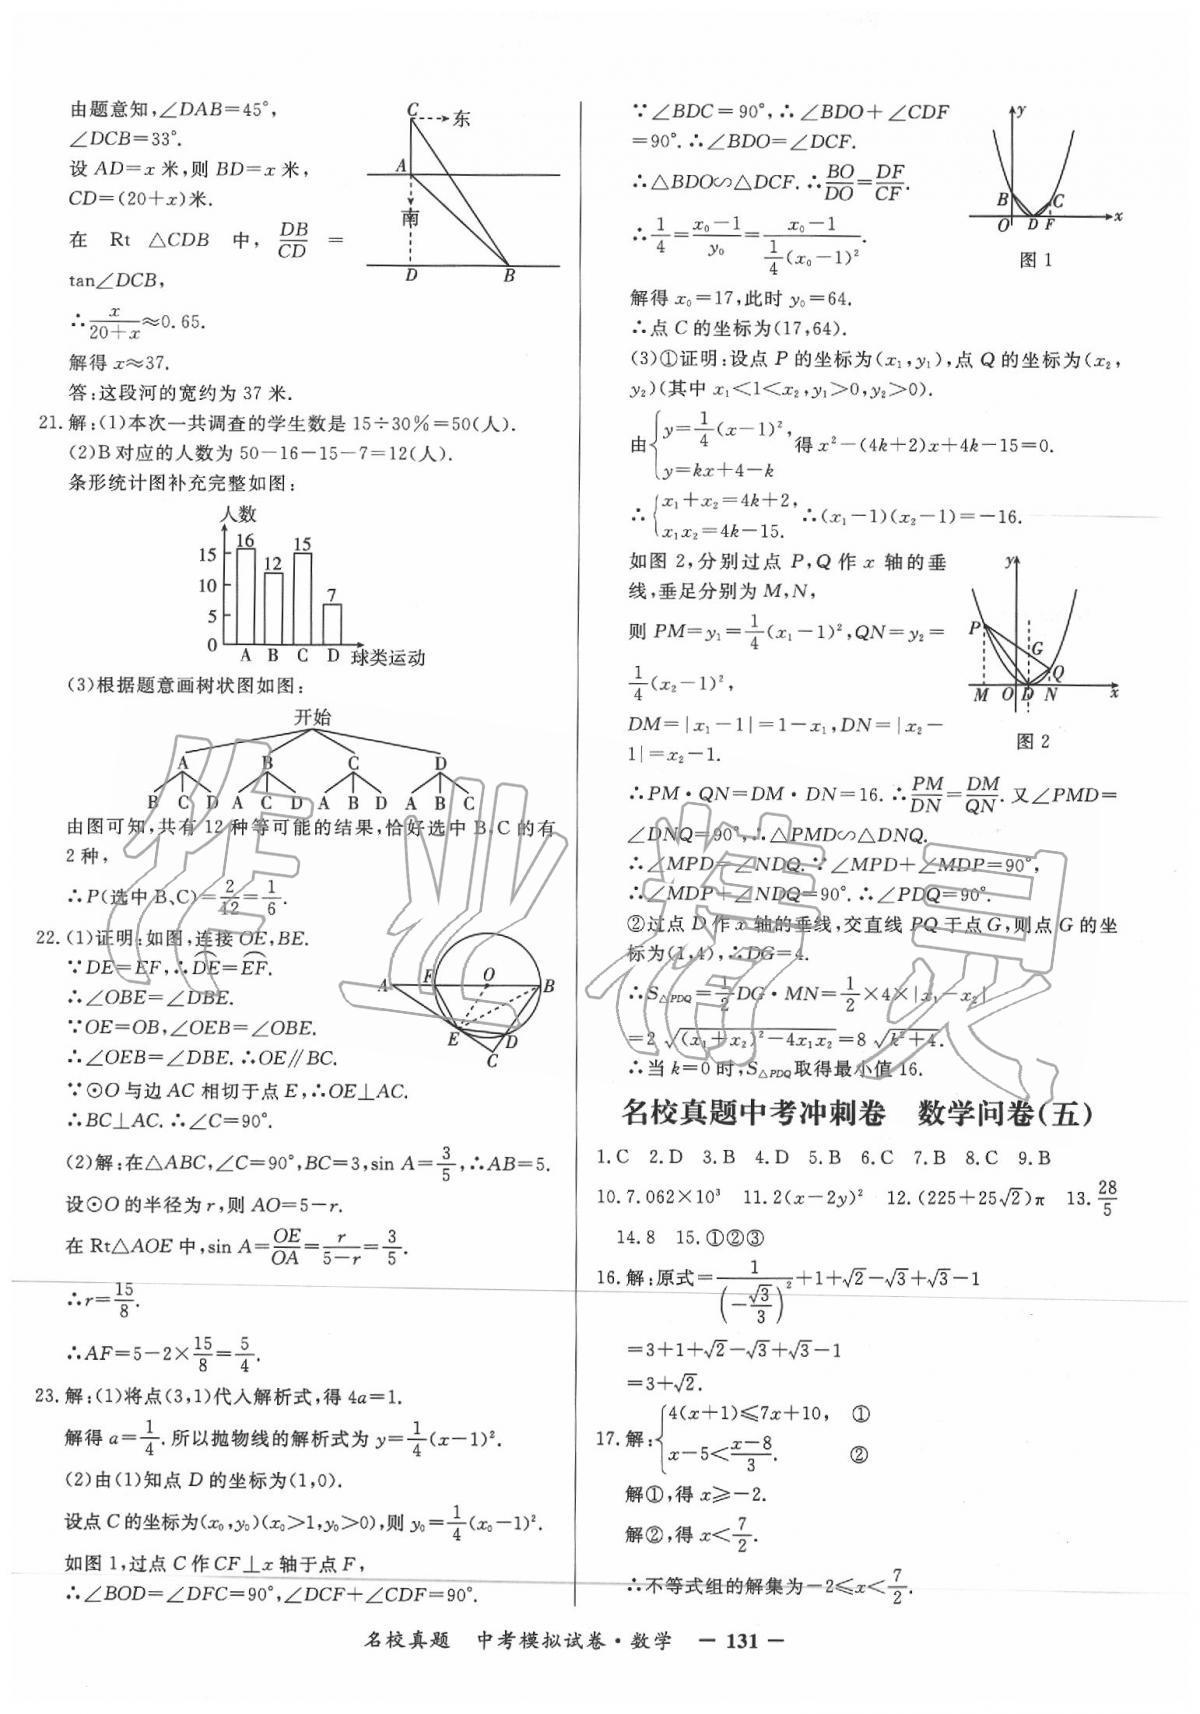 由题意知,∠DAB=45°,
∠DCB=33°.
设 AD=x 米,则 BD=x 米,
CD=(20+x)米.
在 Rt △CDB 中, DB/CD =
tan∠DCB,
∴x/(20+x)≈0.65.
解得 x≈37.
答:这段河的宽约为 37 米.
C
东
A
南
D
B
21.解:(1)本次一共调查的学生数是 15÷30%=50(人).
(2)B 对应的人数为 50-16-15-7=12(人).
条形统计图补充完整如图:
人数
16
15
15
12
10
7
5
0
A B C D 球类运动
(3)根据题意画树状图如图:
开始
A B C D
B C D A C D A B D A B C
由图可知,共有 12 种等可能的结果,恰好选中 B,C 的有
2 种,
∴P(选中 B、C)=2/12=1/6.
22.(1)证明:如图,连接 OE,BE.
∵DE=EF,∴⌒DE=⌒EF.
∴∠OBE=∠DBE.
∵OE=OB,∠OEB=∠OBE.
∴∠OEB=∠DBE.∴OE∥BC.
∵⊙O 与边 AC 相切于点 E,∴OE⊥AC.
∴BC⊥AC.∴∠C=90°.
A
F
O
B
E
D
C
(2)解:在△ABC,∠C=90°,BC=3,sin A=3/5,∴AB=5.
设⊙O 的半径为 r,则 AO=5-r.
在 Rt△AOE 中,sin A=OE/OA=r/(5-r)=3/5.
∴r=15/8.
∴AF=5-2×15/8=5/4.
23.解:(1)将点(3,1)代入解析式,得 4a=1.
解得 a=1/4.所以抛物线的解析式为 y=1/4(x-1)².
(2)由(1)知点 D 的坐标为(1,0).
设点 C 的坐标为(x₀,y₀)(x₀>1,y₀>0),则 y₀=1/4(x₀-1)².
如图 1,过点 C 作 CF⊥x 轴于点 F,
∴∠BOD=∠DFC=90°,∠DCF+∠CDF=90°.
∵∠BDC=90°,∴∠BDO+∠CDF
=90°.∴∠BDO=∠DCF.
∴△BDO∽△DCF.∴BO/DO=DF/CF.
∴1/4=(x₀-1)/y₀=(x₀-1)/(1/4(x₀-1)²).
y
B
C
O D F
x
图 1
解得 x₀=17,此时 y₀=64.
∴点 C 的坐标为(17,64).
(3)①证明:设点 P 的坐标为(x₁,y₁),点 Q 的坐标为(x₂,
y₂)(其中 x₁<1<x₂,y₁>0,y₂>0).
由{y=1/4(x-1)², y=kx+4-k 得 x²-(4k+2)x+4k-15=0.
∴{x₁+x₂=4k+2, x₁x₂=4k-15. ∴(x₁-1)(x₂-1)=-16.
如图 2,分别过点 P,Q 作 x 轴的垂
线,垂足分别为 M,N,
则 PM=y₁=1/4(x₁-1)²,QN=y₂=
1/4(x₂-1)²,
DM=|x₁-1|=1-x₁,DN=|x₂-
1|=x₂-1.
y
P
G
Q
M O D N
x
图 2
∴PM·QN=DM·DN=16.∴PM/DN=DM/QN.又∠PMD=
∠DNQ=90°,∴△PMD∽△DNQ.
∴∠MPD=∠NDQ.∵∠MPD+∠MDP=90°,
∴∠MDP+∠NDQ=90°.∴∠PDQ=90°.
②过点 D 作 x 轴的垂线,交直线 PQ 于点 G,则点 G 的坐
标为(1,4),∴DG=4.
∴S△PDQ=1/2DG·MN=1/2×4×|x₁-x₂|
=2√((x₁+x₂)²-4x₁x₂)=8√(k²+4).
∴当 k=0 时,S△PDQ取得最小值 16.
名校真题中考冲刺卷 数学问卷(五)
1.C 2.D 3.B 4.D 5.B 6.C 7.B 8.C 9.B
10.7.062×10³ 11.2(x-2y)² 12.(225+25√2)π 13.28/5
14.8 15.①②③
16.解:原式=1/(-√3/3)²+1+√2-√3+√3-1
=3+1+√2-√3+√3-1
=3+√2.
17.解:{4(x+1)≤7x+10, ① x-5<(x-8)/3. ②
解①,得 x≥-2.
解②,得 x<7/2.
∴不等式组的解集为-2≤x<7/2.
名校真题 中考模拟试卷·数学 — 131 —
作业精灵